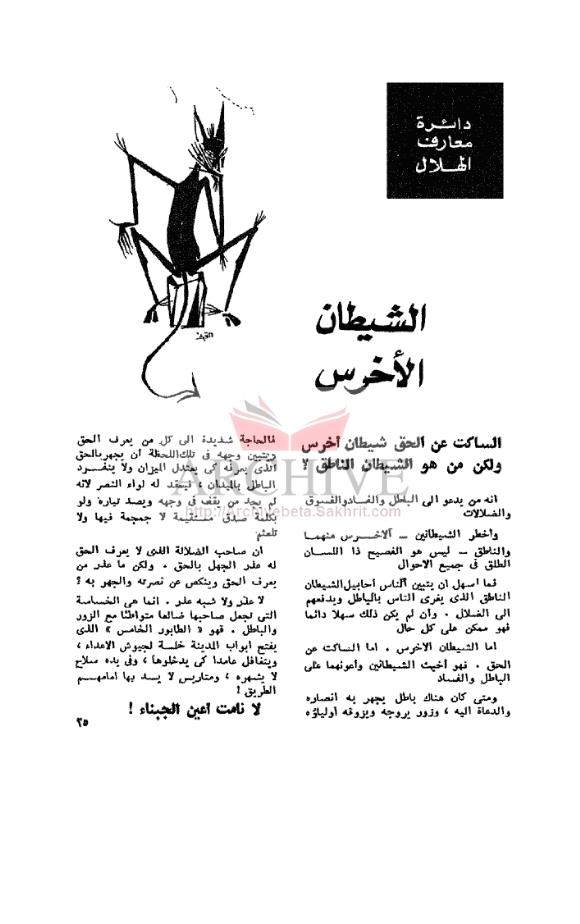 دائرة
معارف
الهلال
الشيطان
الأخرس
الساكت عن الحق شيطان أخرس
ولكن من هو الشيطان الناطق ؟
انه من يدعو الى الباطل والفساد والفسوق
والضلالات
وأخطر الشيطانين – الأخرس منهما
والناطق – ليس هو الفصيح ذا اللسان
الطلق في جميع الاحوال
فما أسهل ان يتبين الناس أحابيل الشيطان
الناطق الذى يغرى الناس بالباطل ويدفعهم
الى الضلال . وان لم يكن ذلك سهلا دائما
فهو ممكن على كل حال
اما الشيطان الاخرس . اما الساكت عن
الحق . فهو أخبث الشيطانين وأعونهما على
الباطل والفساد
ومتى كان هناك باطل يجهر به انصاره
والدعاة اليه ، وزور يروجه ويزوقه أولياؤه
فالحاجة شديدة الى كل من يعرف الحق
ويتبين وجهه في تلك اللحظة ان يجهر بالحق
الذى يعرف كى يعتدل الميزان ولا ينفرد
الباطل بالميدان ، فيعقد له لواء النصر لانه
لم يجد من يقف في وجهه ويصد تياره ولو
بكلمة صدق مستقيمة لا جمجمة فيها ولا
تلعثم
ان صاحب الضلالة الذى لا يعرف الحق
له عذر الجهل بالحق . ولكن ما عذر من
يعرف الحق وينكص عن نصرته والجهر به ؟
لا عذر ولا شبه عذر . انما هى الخساسة
التى تجعل صاحبها ضالعا متواطئا مع الزور
والباطل . فهو « الطابور الخامس » الذى
يفتح أبواب المدينة خلسة لجيوش الاعداء ،
ويتغافل عامدا كى يدخلوها ، وفى يده سلاح
لا يشهره ، ومتاريس لا يسد بها امامهم
الطريق !
لا نامت أعين الجبناء !
٢٥
ARCHIVE
http://archivebeta.Sakhrit.com